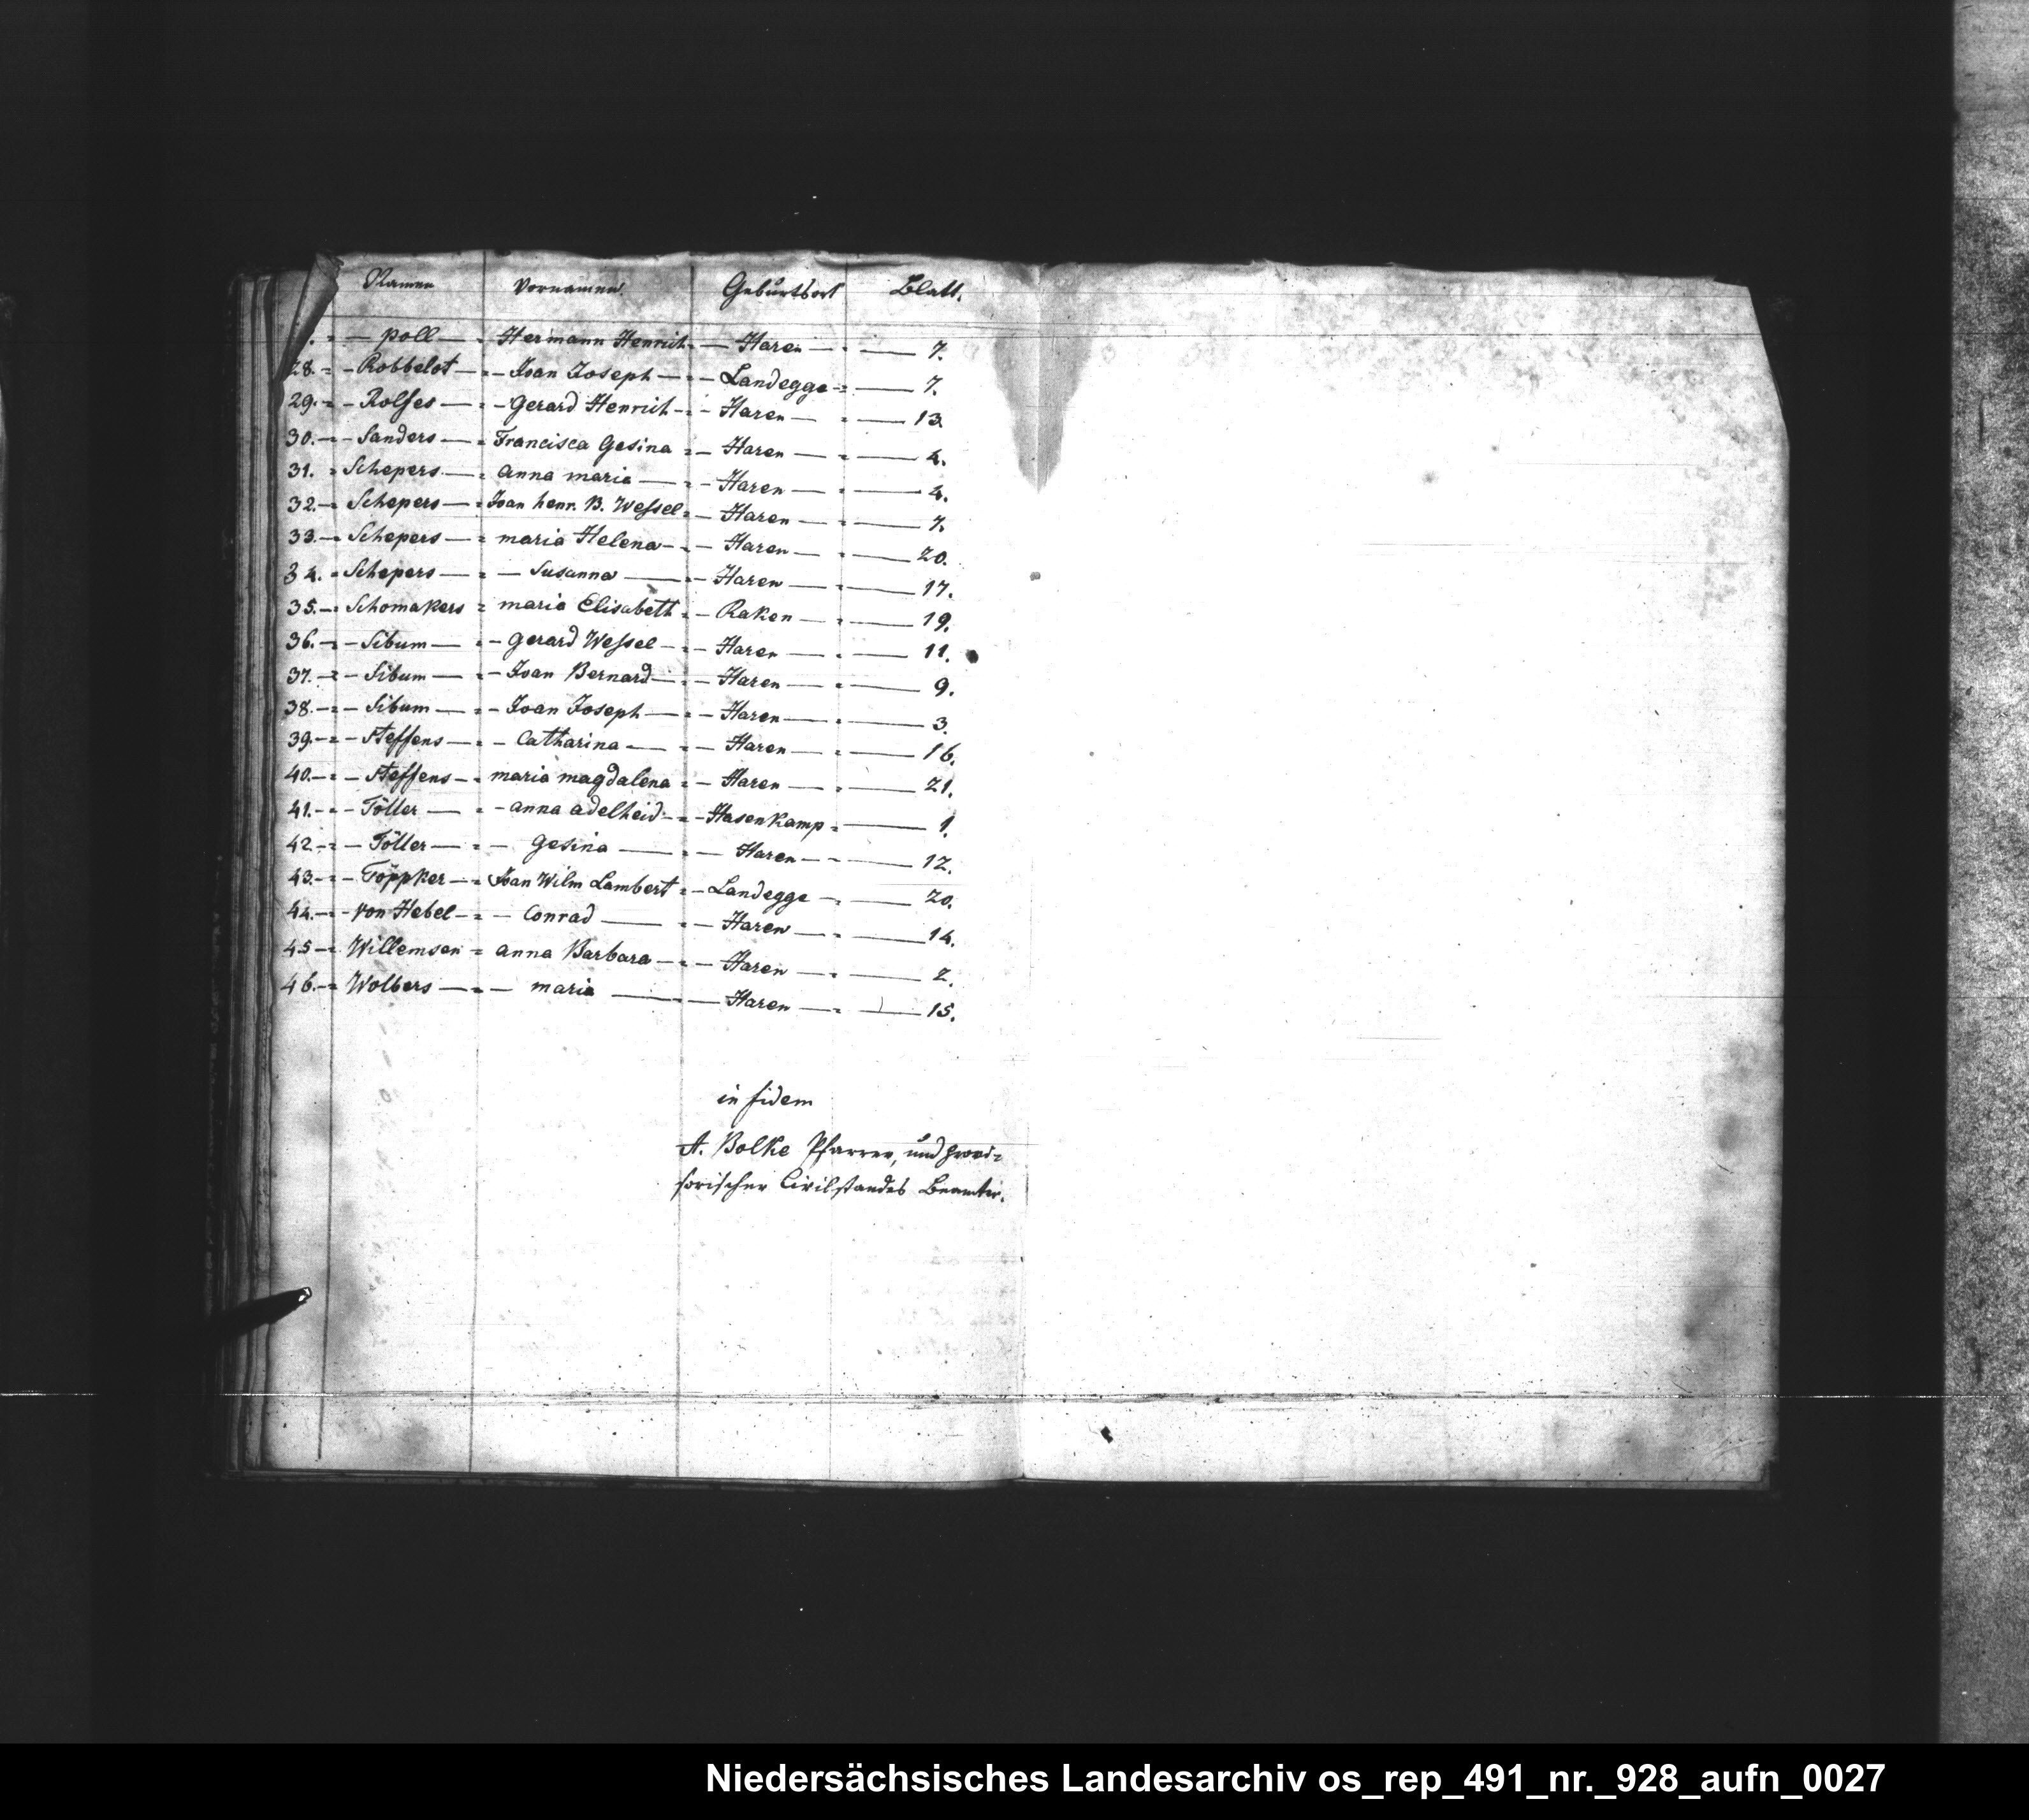 Namen Vornamen. Geburtsort Blatt.
. = — Poll — = Hermann Henrich = — Haren — = — 7.
28. = — Robbelot — = — Joan Joseph — = — Landegge = — 7.
29. = — Rolfes — = — Gerard Henrich = — Haren — = — 13.
30. = — Sanders — = Francisca Gesina = — Haren — = — 4.
31. = Schepers — = anna maria — = — Haren — = — 4.
32. = Schepers — = Joan henr. B. Wessel = — Haren — = — 7.
33. = Schepers — = maria Helena — = — Haren — = — 20.
34. = Schepers — = — Susanna — = — Haren — = — 17.
35. = Schomakers = maria Elisabeth = — Raken — = — 19.
36. = — Sibum — = — gerard Wessel — = — Haren — = — 11.
37. = — Sibum — = — Joan Bernard — = — Haren — = — 9.
38. = — Sibum — = — Joan Joseph — = — Haren — = — 3.
39. = — Steffens — = — Catharina — = — Haren — = — 16.
40. = — Steffens — = maria magdalena = — Haren — = — 21.
41. = — Töller — = — anna adelheid = — Hasenkamp = — 1.
42. = — Töller — = — gesina — = — Haren — = — 12.
43. = — Töppker — = Joan Wilm Lambert = — Landegge — = — 20.
44. = — von Hebel — = — Conrad — = — Haren — = — 14.
45 = Willemsen = anna Barbara — = — Haren — = — 2.
46. = Wolbers — = — maria — = — Haren — = — 15.
in fidem
A. Bolke Pfarrer, und provi=
sorischer Civilstandes Beamter.
Niedersächsisches Landesarchiv os_rep_491_nr._928_aufn_0027